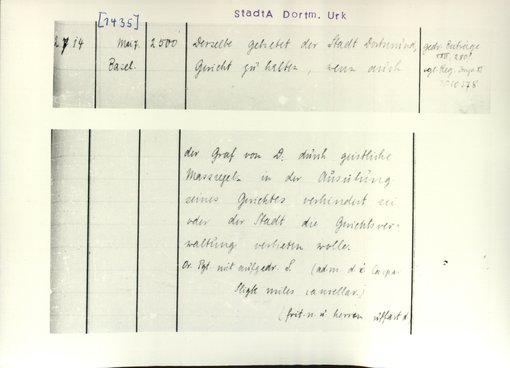 StadtA Dortm. Urk
[1435]
2714 Mai 7. 2500 Derselbe gebietet der Stadt Dortmund,
Basel. Gericht zu halten, wenn auch
gedr. Beiträge
der Graf von D. durch geistliche
Massregeln in der Ausübung
seines Gerichtes verhindert sei
oder der Stadt die Gerichtsver-
waltung verbieten wolle.
Or. Pgt. mit aufgedr. S. (adm. d i Caspar
Sligk miles cancellar.)